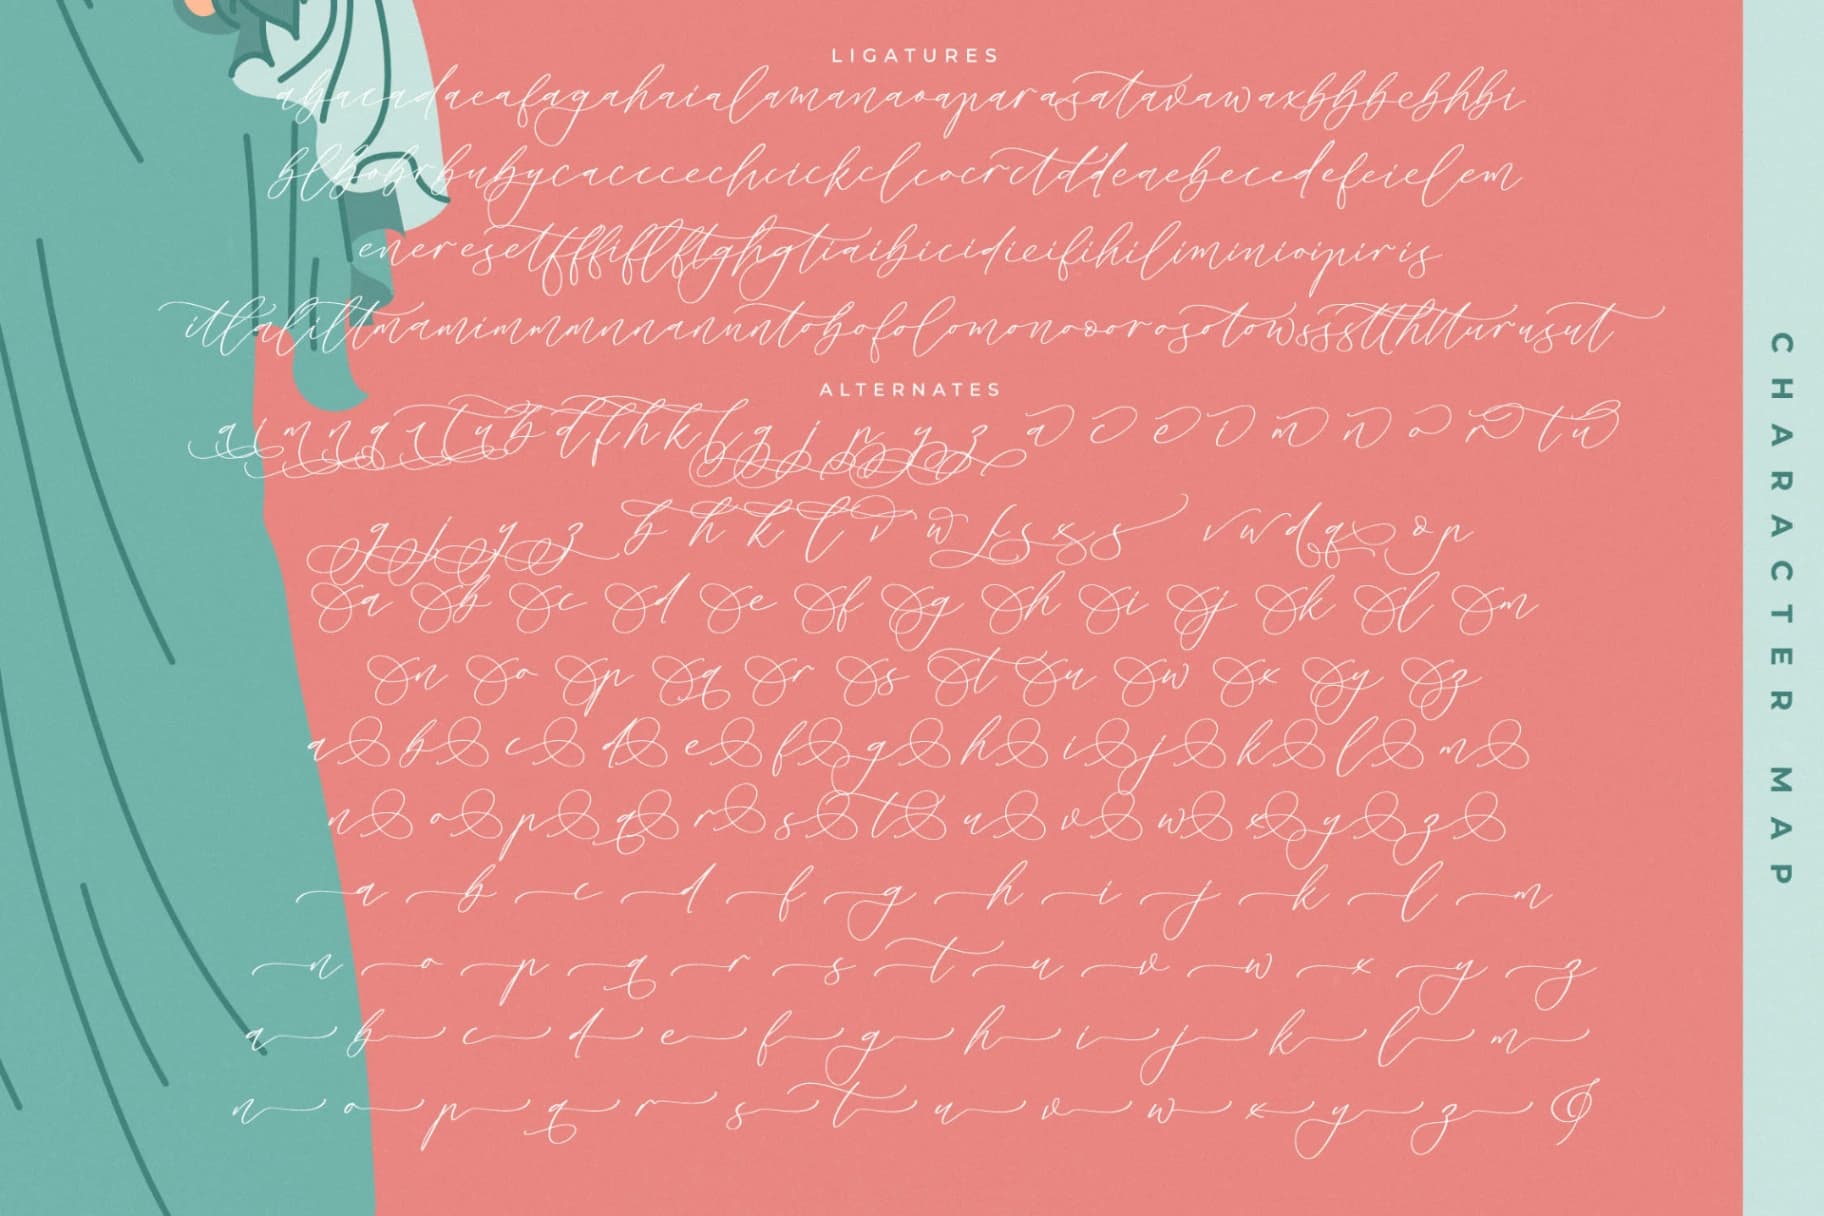 LIGATURES
abacadaeafagahaialamanaoaparasatavawaxbbbebhbi
blbobrbubycacccechcickclcocrctddeaebecedefeielem
eneresetfffifltftghgtiaibicidieifihiliminioipiris
itlalilltmamimmmnnanntobofolomonooorosotowssstthtturusut
ALTERNATES
a i m n q r t u b d f h k l g j p y z a c e i m n o r t u
g j y z b h k l v w k s x s v w d q o p
a b c d e f g h i j k l m
n o p q r s t u w x y z
a b c d e f g h i j k l m
n o p q r s t u v w x y z
a b c d f g h i j k l m
n o p q r s t u v w x y z
a b c d e f g h i j k l m
n o p q r s t u v w x y z
CHARACTER MAP